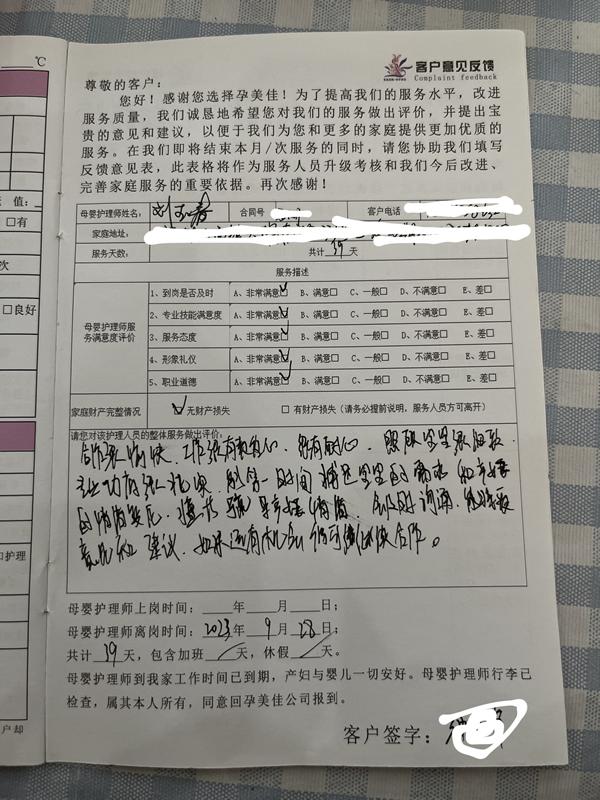 ℃
客户意见反馈
Complaint feedback
尊敬的客户:
您好！感谢您选择孕美佳！为了提高我们的服务水平，改进
服务质量，我们诚恳地希望您对我们的服务做出评价，并提出宝
贵的意见和建议，以便于我们为您和更多的家庭提供更加优质的
服务。在我们即将结束本月/次服务的同时，请您协助我们填写
反馈意见表，此表格将作为服务人员升级考核和我们今后改进、
完善家庭服务的重要依据。再次感谢！
母婴护理师姓名: 刘 合同号 客户电话
家庭地址:
服务天数: 共计 39 天
服务描述
母婴护理师服
务满意度评价
1、到岗是否及时 A、非常满意□ B、满意□ C、一般□ D、不满意□ E、差□
2、专业技能满意度 A、非常满意□ B、满意□ C、一般□ D、不满意□ E、差□
3、服务态度 A、非常满意□ B、满意□ C、一般□ D、不满意□ E、差□
4、形象礼仪 A、非常满意□ B、满意□ C、一般□ D、不满意□ E、差□
5、职业道德 A、非常满意□ B、满意□ C、一般□ D、不满意□ E、差□
家庭财产完整情况 无财产损失 □ 有财产损失（请务必提前说明，服务人员方可离开）
请您对该护理人员的整体服务做出评价:
合作很愉快、工作很有责任心、很有耐心、照顾宝宝很细致、
专业功底很扎实、能第一时间捕捉宝宝的需求和产妇
的情绪变化、产妇情绪、会及时沟通、
意见和建议、如果还有机会 合作。
母婴护理师上岗时间: ____年____月____日;
母婴护理师离岗时间: 2023年 9 月 28 日;
共计 39 天，包含加班 / 天，休假 / 天。
母婴护理师到我家工作时间已到期，产妇与婴儿一切安好。母婴护理师行李已
检查，属其本人所有，同意回孕美佳公司报到。
客户签字:
值:
□有
次
□良好
和护理
户 却